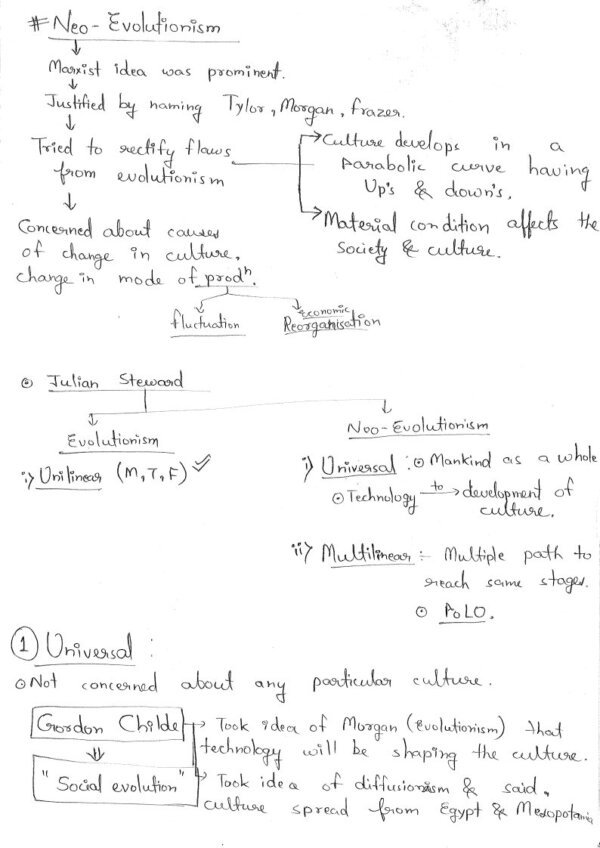 # Neo-Evolutionism
Marxist idea was prominent.
Justified by naming Tylor, Morgan, frazer.
Tried to rectify flaws
from evolutionism
Culture develops in a
Parabolic curve having
Up's & down's.
Material condition affects the
society & culture.
Concerned about causes
of change in culture,
change in mode of prodn.
fluctuation
Economic
Reorganisation
Julian Steward
Evolutionism
i) Unilinear (M, T, F) ✓
Neo-Evolutionism
i) Universal : Mankind as a whole
Technology to development of
culture.
ii) Multilinear :- Multiple path to
reach same stages.
POLO.
① Universal :
Not concerned about any particular culture.
Gordon Childe
"Social evolution"
Took idea of Morgan (Evolutionism) that
technology will be shaping the culture.
Took idea of diffusionism & said,
culture spread from Egypt & Mesopotamia